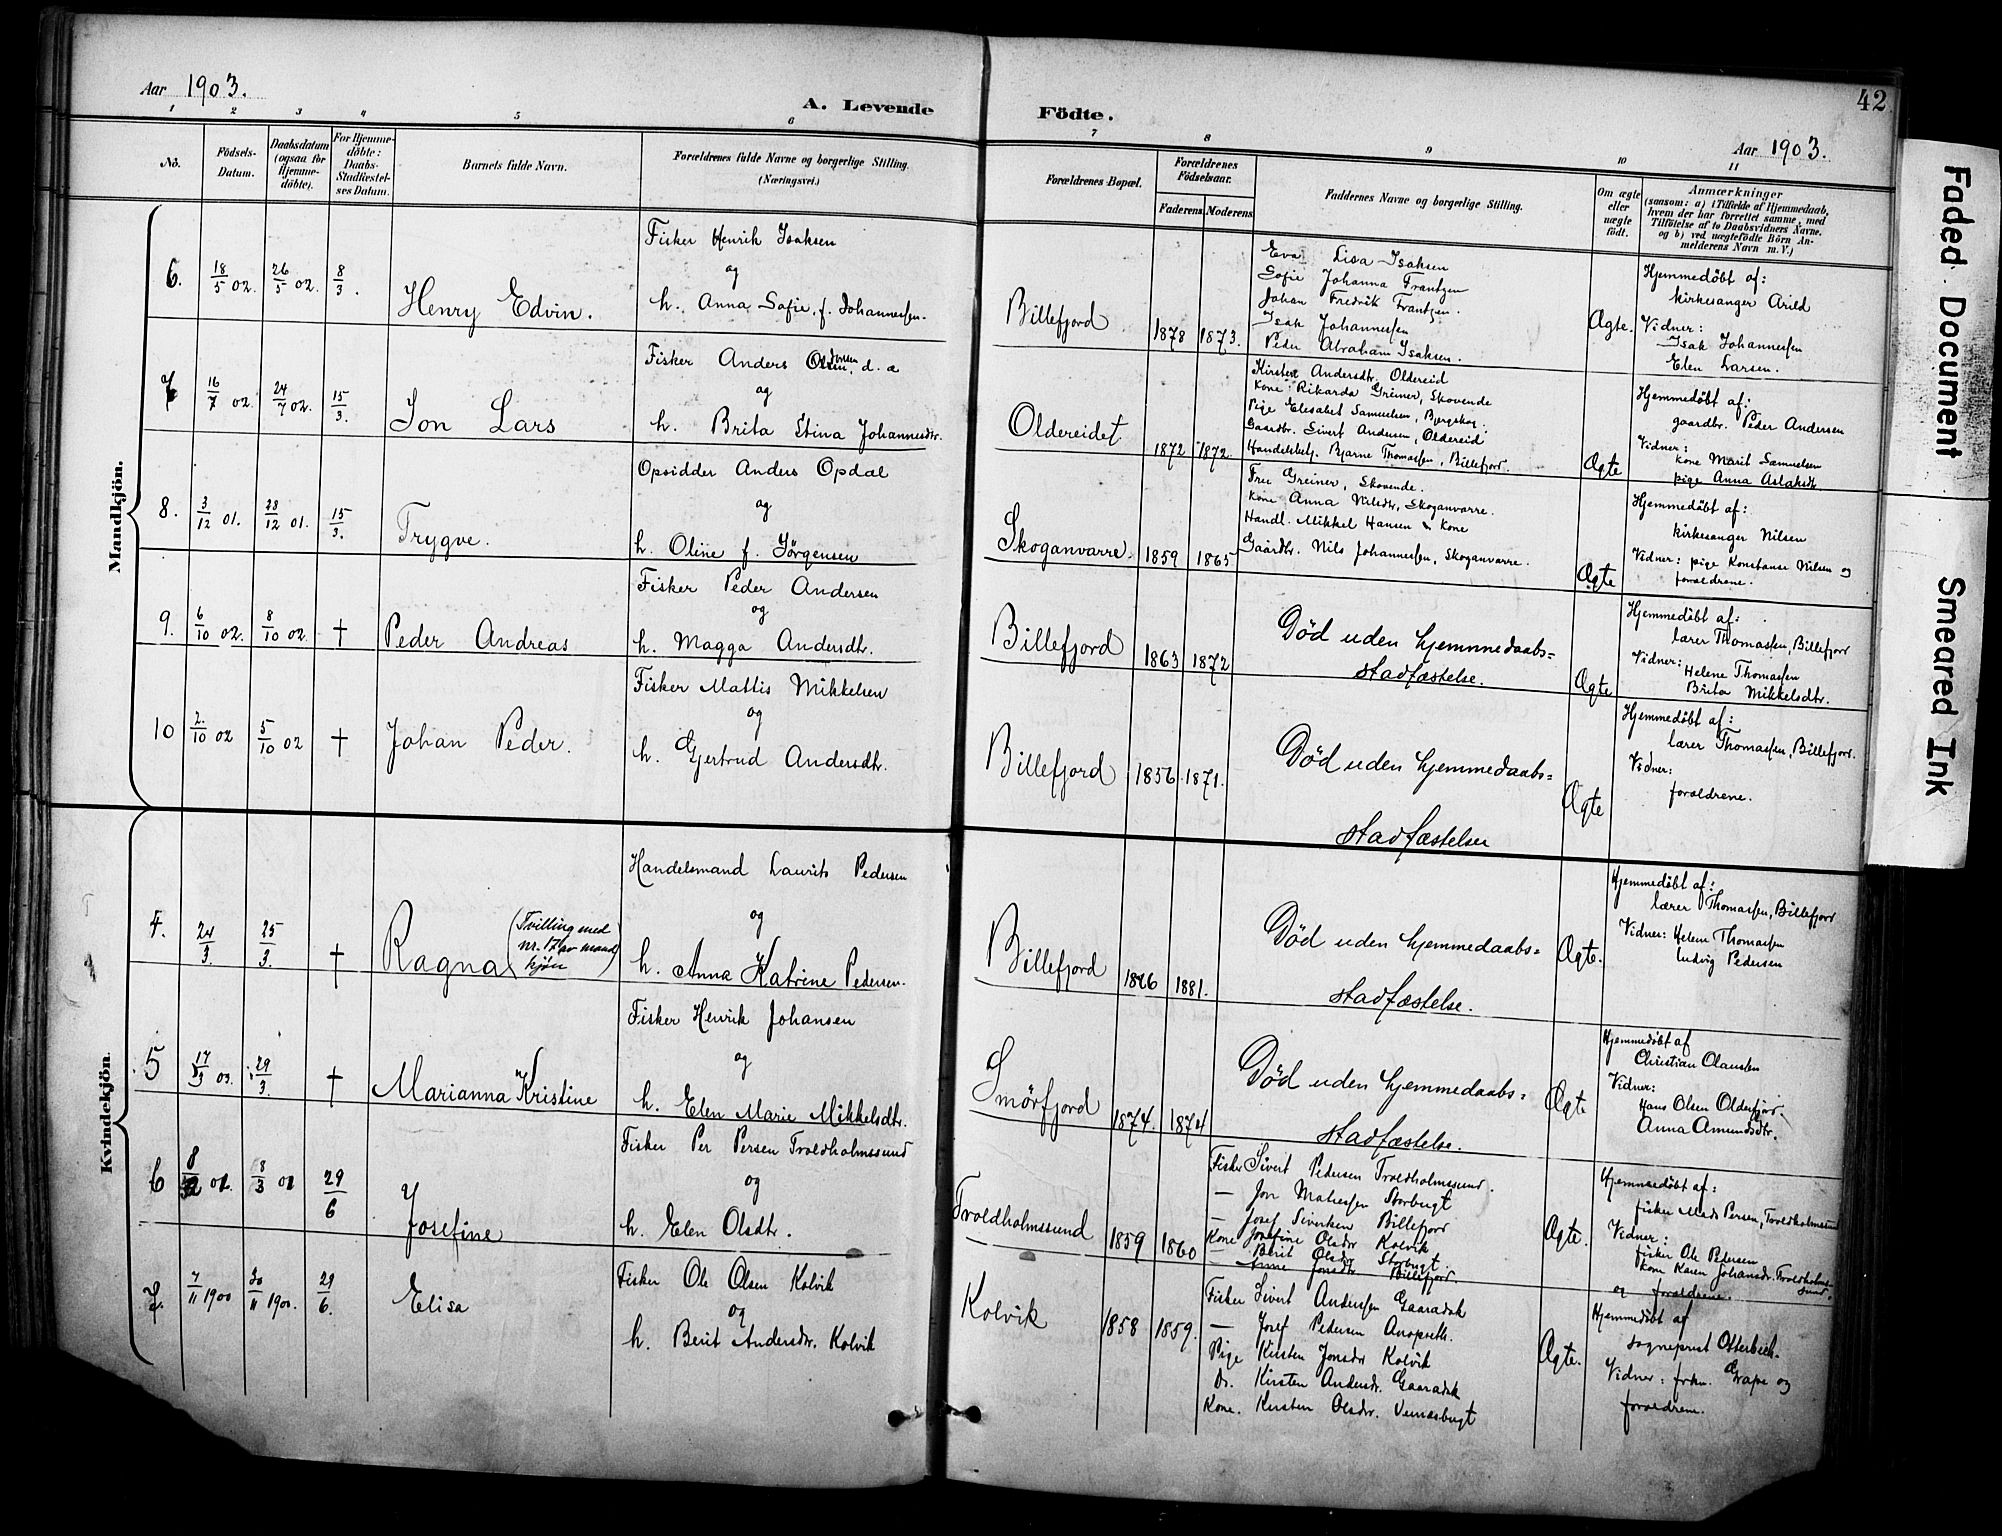 Aar 1903.
A. Levende Födte.
42
Aar 1903.
1 2 3 4 5 6 7 8 9 10 11
Nö.
Födsels-Datum.
Daabsdatum (ogsaa for Hjemme-döbte).
For Hjemme-döbte: Daabs-Stadfæstel-ses Datum.
Barnets fulde Navn.
Forældrenes fulde Navne og borgerlige Stilling.
(Næringsvei.)
Forældrenes Bopæl.
Forældrenes Födselsaar.
Faderens Moderens
Faddernes Navne og borgerlige Stilling.
Om ægte eller uægte födt.
Anmærkninger
(saasom: a) i Tilfælde af Hjemmedaab,
hvem der har forrettet samme, med
Tilföielse af to Daabsvidners Navne,
og b) ved uægtefödte Börn An-
melderens Navn m. V.)
Mandkjön.
6. 18/5 02. 26/5 02. 8/3. Henry Edvin.
Fisker Henrik Isaksen
og
h. Anna Sofie, f. Johannessen.
Billefjord 1878 1873.
Eva Lisa Isaksen
Sofie Johanna Frantzen
Johan Fredrik Frantzen.
Isak Johannessen
Peder Abraham Isaksen.
Ægte.
Hjemmedøbt af:
kirkesanger Arild
Vidner:
Isak Johannessen
Elen Larsen.
7 16/7 02. 24/7 02. 15/3. Jon Lars
Fisker Anders Olsen, d. a
og
h. Brita Stina Johannesdtr.
Oldereidet 1872 1872
Kirsten Andersdtr. Oldereid
Kone Rikarda Greiner, Skovende
Pige Elisabet Samuelsen,
Gaardbr. Sivert Andersen, Oldereid
Handelsbetj. Bjarne Thomassen, Billefjord.
Ægte
Hjemmedøbt af:
gaardbr. Peder Andersen
Vidner:
kone Marit Samuelsen
pige Anna Aslaksdtr.
8. 3/12 01. 28/12 01. 15/3. Trygve.
Opsidder Anders Opdal
og
h. Oline f. Jørgensen
Skoganvarre. 1859 1865
Fru Greiner, Skovende.
Kone Anna Nilsdtr, Skoganvarre.
Handl. Mikkel Hansen & Kone
Gaardbr. Nils Johannessen, Skoganvarre.
Ægte
Hjemmedøbt af:
kirkesanger Nilsen
Vidner: pige Konstanse Nilsen og
forældrene.
9. 6/10 02. 8/10 02. † Peder Andreas
Fisker Peder Andersen
og
h. Magga Andersdtr.
Billefjord 1863 1872
Død uden hjemmedaabs=
stadfæstelse.
Ægte
Hjemmedøbt af:
lærer Thomassen, Billefjord
Vidner:
Helene Thomassen
Brita Mikkelsdtr.
10 2/10 02 5/10 02 † Johan Peder.
Fisker Mattis Mikkelsen
og
h. Gjertrud Andersdtr.
Billefjord 1856. 1871.
Død uden hjemmedaabs=
stadfæstelse
Ægte
Hjemmedøbt af:
lærer Thomassen, Billefjord.
Vidner:
forældrene.
Kvindekjön.
4. 24/3. 25/3. † Ragna (Tvilling med
nr. 17 av mand
kjøn)
Handelsmand Laurits Pedersen
og
h. Anna Katrine Pedersen.
Billefjord 1881.
Død uden hjemmedaabs=
stadfæstelse.
Ægte.
Hjemmedøbt af:
lærer Thomassen, Billefjord
Vidner: Helene Thomassen
Ludvig Pedersen
5 17/3 03. 29/3. † Marianna Kristine
Fisker Henrik Johansen
og
h. Elen Marie Mikkelsdtr.
Smörfjord 1874. 1874
Død uden hjemmedaabs=
stadfæstelse.
Ægte
Hjemmedøbt af
Christian Olaussen
Vidner:
Hans Olsen Olderfjor.
Anna Amundsdtr.
6 8/3 29/6 Josefine
Fisker Per Persen Troldholmssund
og
h. Elen Olsdtr.
Troldholmssund 1859 1860
Fisker Sivert Pedersen Troldholmssund.
— Jon Mathessen Storbugt
— Josef Siversen Billefjord
Kone Josefine Olsdtr Kolvik
— Berit Olsdtr Storbugt.
— Anne Jonsdtr Billefjord.
Ægte.
Hjemmedøbt af:
fisker Mads Persen, Troldholmsund
Vidner:
fisker Ole Pedersen
kone Karen Johansdr. Troldholms-
sund.
og forældrene.
7. 7/11 1900 30/11 1900. 29/6. Elisa
Fisker Ole Olsen Kolvik
og
h. Berit Andersdtr. Kolvik
Kolvik 1858 1859.
Fisker Sivert Anderssen
— Josef Pedersen
Pige Kirsten Jonsdtr Kolvik
Do. Kirsten Andersdr.
Kone. Kirsten Olsdtr.
Ægte.
Hjemmedøbt af
sogneprest Otterbech.
Vidner: frkn. Grape og
forældrene.
Faded Document Smeared Ink